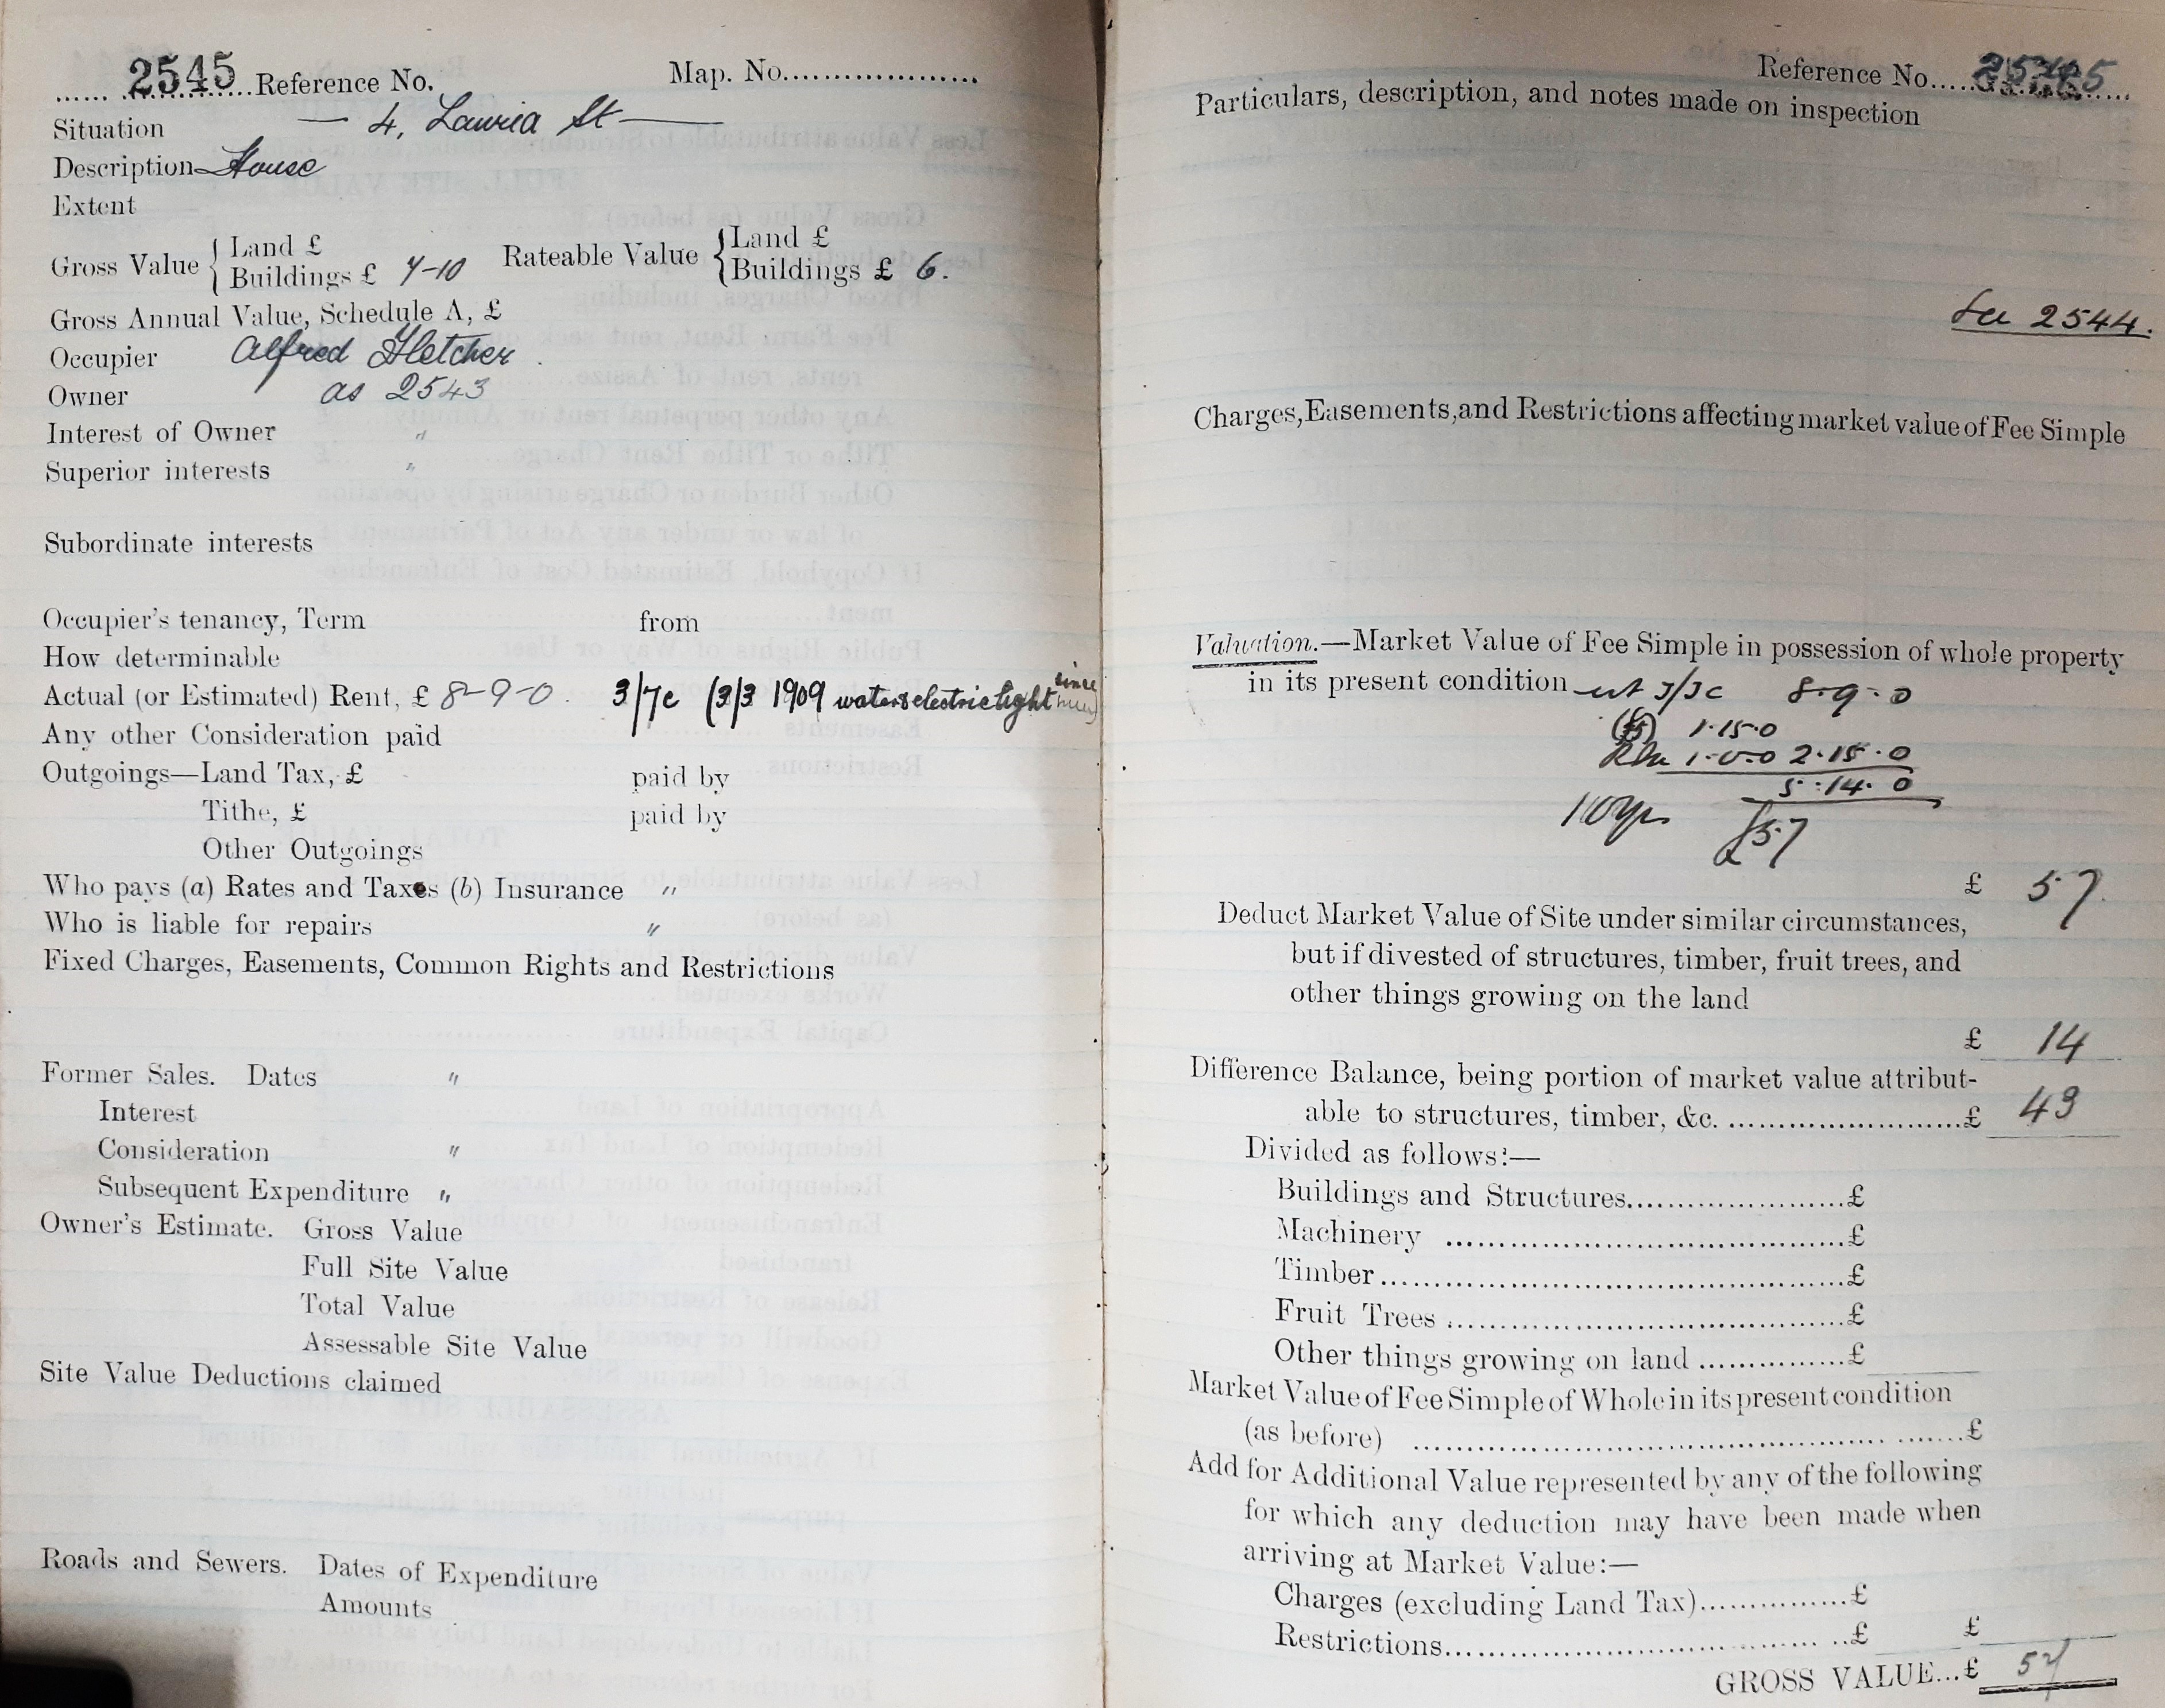 2545 Reference No. Map. No.
Situation — 4, Lawria St —
Description House
Extent
Gross Value { Land £ Rateable Value { Land £
Buildings £ 7-10 Buildings £ 6.
Gross Annual Value, Schedule A, £
Occupier Alfred Fletcher.
Owner as 2543
Interest of Owner "
Superior interests "
Subordinate interests
Occupier's tenancy, Term from
How determinable
Actual (or Estimated) Rent, £ 8-9-0. 3/7c (3/3 1909 water & electric light since
Any other Consideration paid
Outgoings—Land Tax, £ paid by
Tithe, £ paid by
Other Outgoings
Who pays (a) Rates and Taxes (b) Insurance "
Who is liable for repairs "
Fixed Charges, Easements, Common Rights and Restrictions
Former Sales. Dates "
Interest
Consideration "
Subsequent Expenditure "
Owner's Estimate. Gross Value
Full Site Value
Total Value
Assessable Site Value
Site Value Deductions claimed
Roads and Sewers. Dates of Expenditure
Amounts
Reference No. 2545
Particulars, description, and notes made on inspection
See 2544.
Charges, Easements, and Restrictions affecting market value of Fee Simple
Valuation.—Market Value of Fee Simple in possession of whole property
in its present condition 3/3c 8-9-0
1-15-0
1-0-0 2-15-0
5-14-0
10 yrs £57
£ 57.
Deduct Market Value of Site under similar circumstances,
but if divested of structures, timber, fruit trees, and
other things growing on the land
£ 14
Difference Balance, being portion of market value attribut-
able to structures, timber, &c. £ 43
Divided as follows:—
Buildings and Structures £
Machinery £
Timber £
Fruit Trees £
Other things growing on land £
Market Value of Fee Simple of Whole in its present condition
(as before) £
Add for Additional Value represented by any of the following
for which any deduction may have been made when
arriving at Market Value:—
Charges (excluding Land Tax) £
Restrictions £ £
GROSS VALUE...£ 57